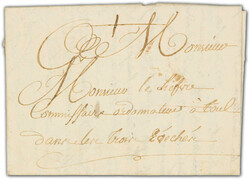 Monsieur
Monsieur le
Commissaire ordonnateur a Toul
dans les trois Evechés